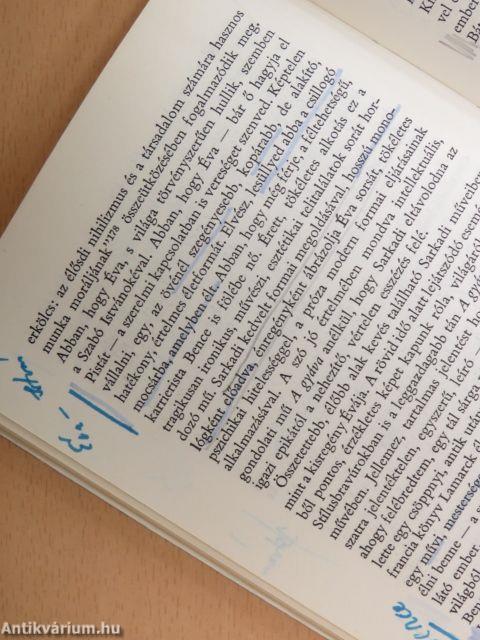 erkölcs: az élősdi nihilizmus és a társadalom számára hasznos
munka moráljának"¹⁷⁸ összeütközésében fogalmazódik meg.
Abban, hogy Éva, s világa törvényszerűen hullik, szemben
a Szabó Istvánokéval. Abban, hogy Éva — bár ő hagyja el
Pistát — a szerelmi kapcsolatban is vereséget szenved. Képtelen
vállalni, egy, az övénél szegényebb, kopárabb, de alakító,
hatékony, értelmes életformát. Elvész, besüllyed abba a csillogó
mocsárba, amelyben él. Abban, hogy mégférje, a féltehetségű,
karrierista Bence is fölébe nő. Érett, tökéletes alkotás ez a
tragikusan ironikus, művészi, esztétikai telitalálatok sorát hor-
dozó mű. Sarkadi kedvelt formai megoldásával, hosszú mono-
lógként előadva, énregényként ábrázolja Éva sorsát, tökéletes
pszichikai hitelességgel, a próza modern formai eljárásainak
alkalmazásával. A szó jó értelmében mondva intellektuális,
gondolati mű A gyáva, anélkül, hogy Sarkadi eltávolodna az
igazi epikától a nehezítő, vértelen esszézés felé.
Összetettebb, élőbb alak kevés található Sarkadi műveiben
mint a kisregény Évája. A rövid idő alatt lejátszódó
ből pontos, érzékletes képet kapunk róla,
Stílusbravúrokban is a leggazdagabb tán A
művében. Jellemez, tartalmas jelentést
szatra jelentéktelen, egyszerű, leíró —
ahogy felébredtem, egy tál sárga
lette egy csöppnyi, antik
francia könyv Lamarck
egy művi,
élni benne — a
látó ember.
világból
Éva —
Antikvárium.hu